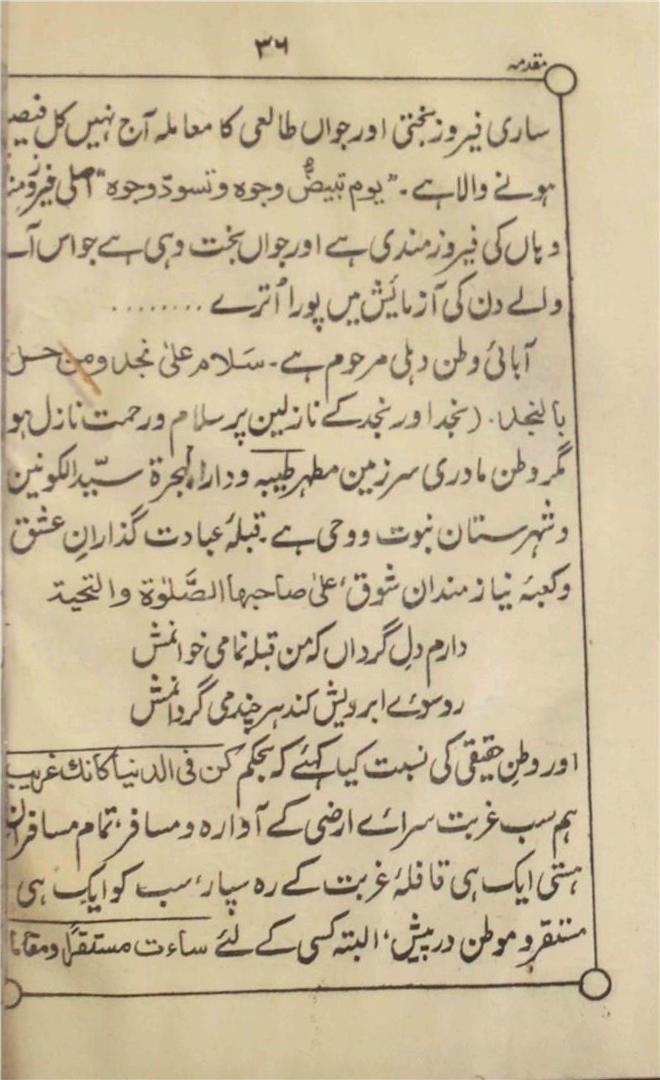 ۳۶
مقدمہ
ساری فیروز بختی اور جواں طالعی کا معاملہ آج نہیں کل فیصہ
ہونے والا ہے۔ "یوم تبیضُّ وجوہ وتسودّ وجوہ" اصلی فیروز من
وہاں کی فیروز مندی ہے اور جواں بخت وہی ہے جو اس آنے
والے دن کی آزمائش میں پورا اُترے ........
آبائی وطن دہلی مرحوم ہے۔ سَلام علیٰ نجد ومن حل
بالنجد۔ (نجد اور نجد کے نازلین پر سلام ورحمت نازل ہو
مگر وطن مادری سرزمین مطہر طیبہ ودار الہجرۃ سیّد الکونین
وشہرستان نبوت ووحی ہے۔ قبلۂ عبادت گذارانِ عشق
وکعبۂ نیازمندان شوق، علیٰ صاحبہا الصَّلوٰۃ والتحیۃ
دارم دلِ گرداں کہ من قبلہ نمامی خوانمش
روسوئے ابرویش کند ہر چند می گردانمش
اور وطنِ حقیقی کی نسبت کیا کہئے کہ بحکم کن فی الدنیا کانك غریب
ہم سب غربت سرائے ارضی کے آوارہ ومسافر، تمام مسافرانِ
ہستی ایک ہی قافلۂ غربت کے رہ سپار، سب کو ایک ہی
مستقر و موطن درپیش، البتہ کسی کے لئے ساءت مستقراً ومقاما